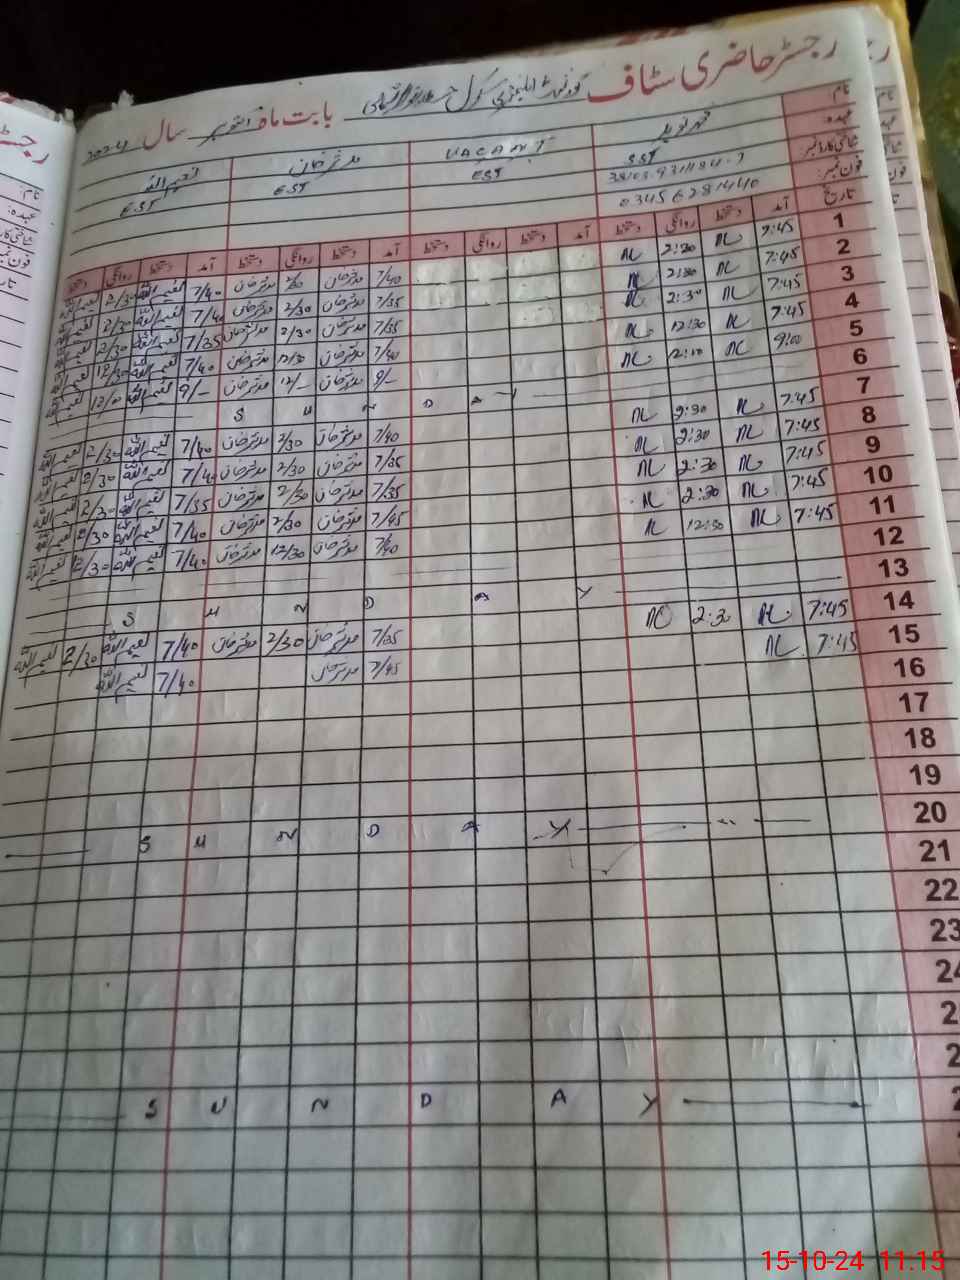 رجسٹر حاضری سٹاف گورنمنٹ ایلیمنٹری سکول بابت ماہ اکتوبر سال 2024
نام
عہدہ VACANT مدثر خان نعیم اللہ
شناختی کارڈ نمبر: SST EST EST EST
فون نمبر:
تاریخ 0345 6281440
آمد دستخط روانگی دستخط آمد دستخط روانگی دستخط آمد دستخط روانگی دستخط آمد دستخط روانگی دستخط
1 7:45 NL 2:30 NL 7/40 مدثر خان 2/30 مدثر خان 7/40 نعیم اللہ 2/30 نعیم اللہ
2 7:45 NL 2:30 NL 7/35 مدثر خان 2/30 مدثر خان 7/40 نعیم اللہ 2/30 نعیم اللہ
3 7:45 NL 2:30 NL 7/35 مدثر خان 2/30 مدثر خان 7/35 نعیم اللہ 2/30 نعیم اللہ
4 7:45 NL 12:30 NL 7/40 مدثر خان 12/30 مدثر خان 7/40 نعیم اللہ 12/30 نعیم اللہ
5 9:00 NL NL 9/– مدثر خان 12/– مدثر خان 9/– نعیم اللہ نعیم اللہ
6 S U N D A Y
7 7:45 NL 2:30 NL 7/40 مدثر خان 2/30 مدثر خان 7/40 نعیم اللہ 2/30 نعیم اللہ
8 7:45 NL 2:30 NL 7/35 مدثر خان 2/30 مدثر خان 7/40 نعیم اللہ 2/30 نعیم اللہ
9 7:45 NL 2:30 NL 7/35 مدثر خان 2/30 مدثر خان 7/35 نعیم اللہ 2/30 نعیم اللہ
10 7:45 NL 2:30 NL 7/45 مدثر خان 2/30 مدثر خان 7/40 نعیم اللہ 2/30 نعیم اللہ
11 7:45 NL 12:30 NL 7/40 مدثر خان 12/30 مدثر خان 7/40 نعیم اللہ 12/30 نعیم اللہ
12
13 S U N D A Y
14 7:45 NL 2:30 NL 7/35 مدثر خان 2/30 مدثر خان 7/40 نعیم اللہ 2/30 نعیم اللہ
15 7:45 NL 7/45 مدثر خان 7/40 نعیم اللہ
16
17
18
19
20 S U N D A Y
21
22
23
24
S U N D A Y
15-10-24 11:15